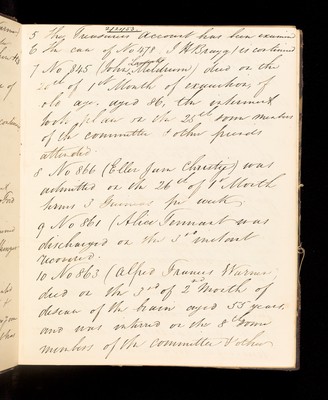 5 The Treasurers Account has been examined
6 The case of No 478. J H Bragg is continued
7 No 845 (John Meldrum) died on the
20th of 1st Month of exhaustion of
old age, aged 86, the interment
took place on the 25th some members
of the committee & other friends
attended.
8 No 866 (Ellen Jane Christy) was
admitted on the 26th of 1st Month
terms 3 Guineas per week
9 No 861 (Alice Tennant was
discharged on the 3rd instant
recovered.
10 No 863 (Alfred Francis Warner)
died on the 3rd of 2nd Month of
disease of the brain aged 55 years,
and was interred on the 8th some
members of the committee & other